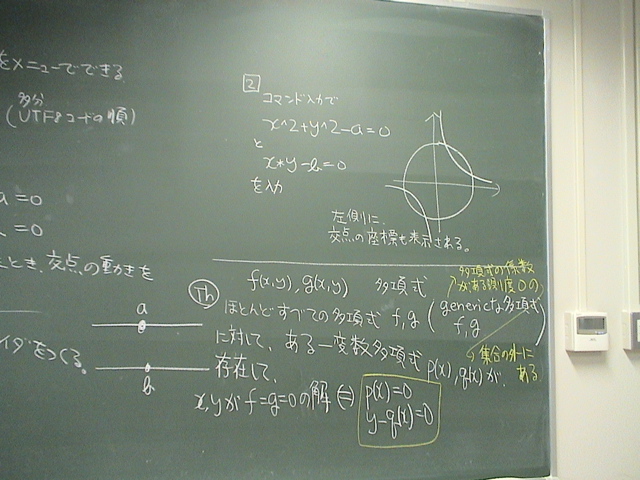 をメニューでできる
多分
(UTF8コードの順)
a=0
=0
とき、交点の動きを
イダをつくる。
a
b
2
コマンド入力で
x^2+y^2-a=0
と
x*y-b=0
を入力
左側に、
交点の座標も表示される。
Th
f(x,y), g(x,y) 多項式
ほとんどすべての多項式 f,g (genericな多項式 f,g)
に対して、ある一変数多項式 p(x), q(x)が
存在して、
x,yが f=g=0の解 ⇔
p(x)=0
y-q(x)=0
多項式の係数
がある
0の
集合の外に
ある